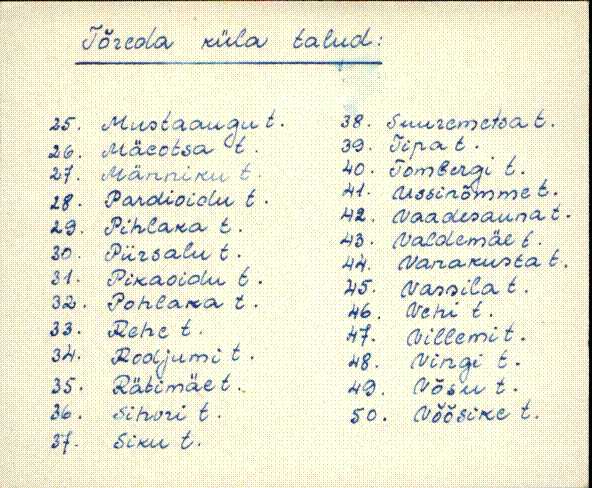 Tõreda küla talud:
25. Mustaaugu t.
26. Mäeotsa t.
27. Männiku t.
28. Pardioidu t.
29. Pihlaka t.
30. Piirsalu t.
31. Pikaoidu t.
32. Pohlaka t.
33. Rehe t.
34. Roodjumi t.
35. Rätimäe t.
36. Sihvri t.
37. Siku t.
38. Suuremetsa t.
39. Tipa t.
40. Tombergi t.
41. Ussinõmme t.
42. Vaadesauna t.
43. Valdemäe t.
44. Vanakusta t.
45. Vassila t.
46. Vehi t.
47. Villemi t.
48. Vingi t.
49. Võsu t.
50. Võõsike t.